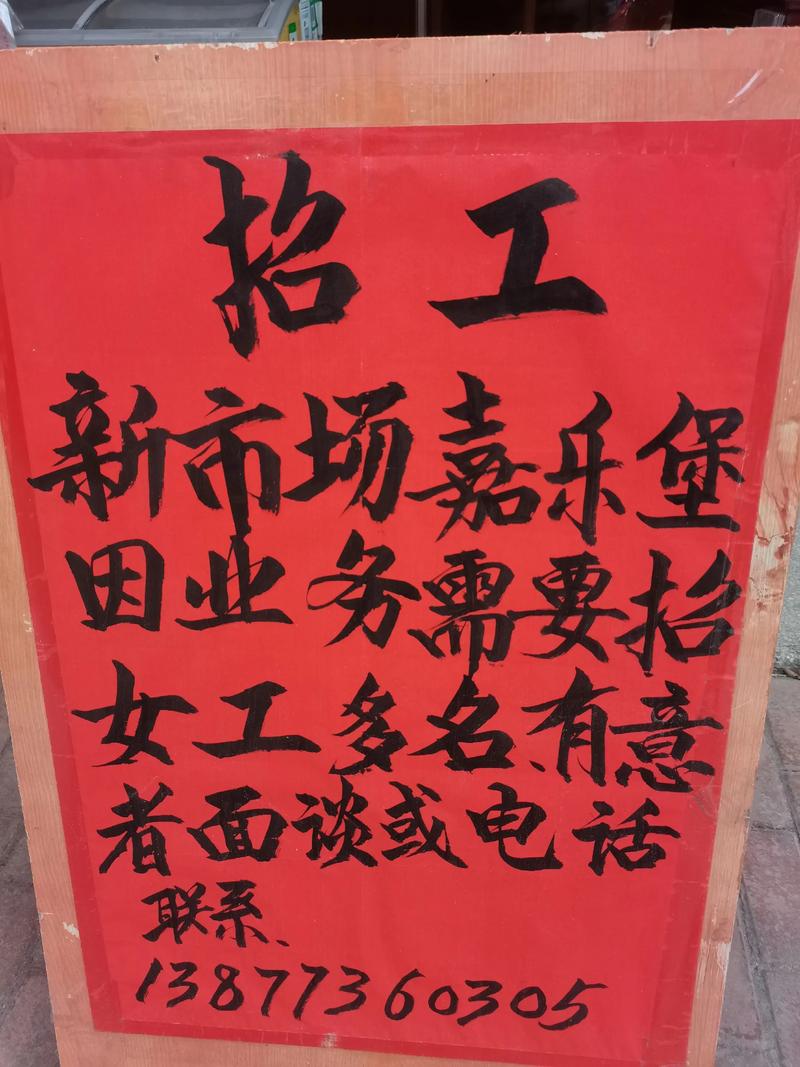 招工
新市场嘉乐堡
因业务需要招
女工多名有意
者面谈或电话
联系、
13877360305